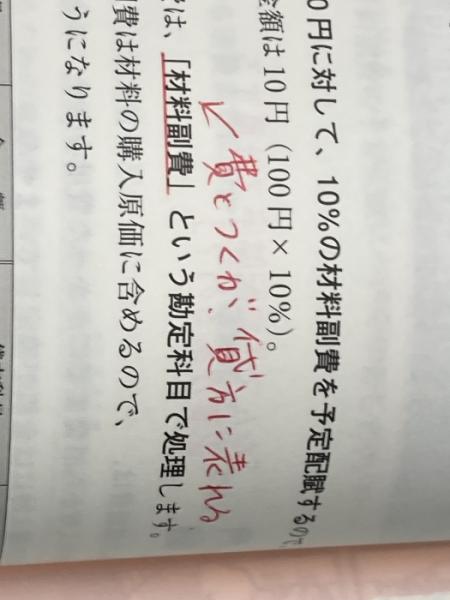 0円に対して、10%の材料副費を予定配賦するので
金額は10円（100円×10%）。
↙費とつくが、貸方に表れる
は、「材料副費」という勘定科目で処理します。
費は材料の購入原価に含めるので、
うになります。